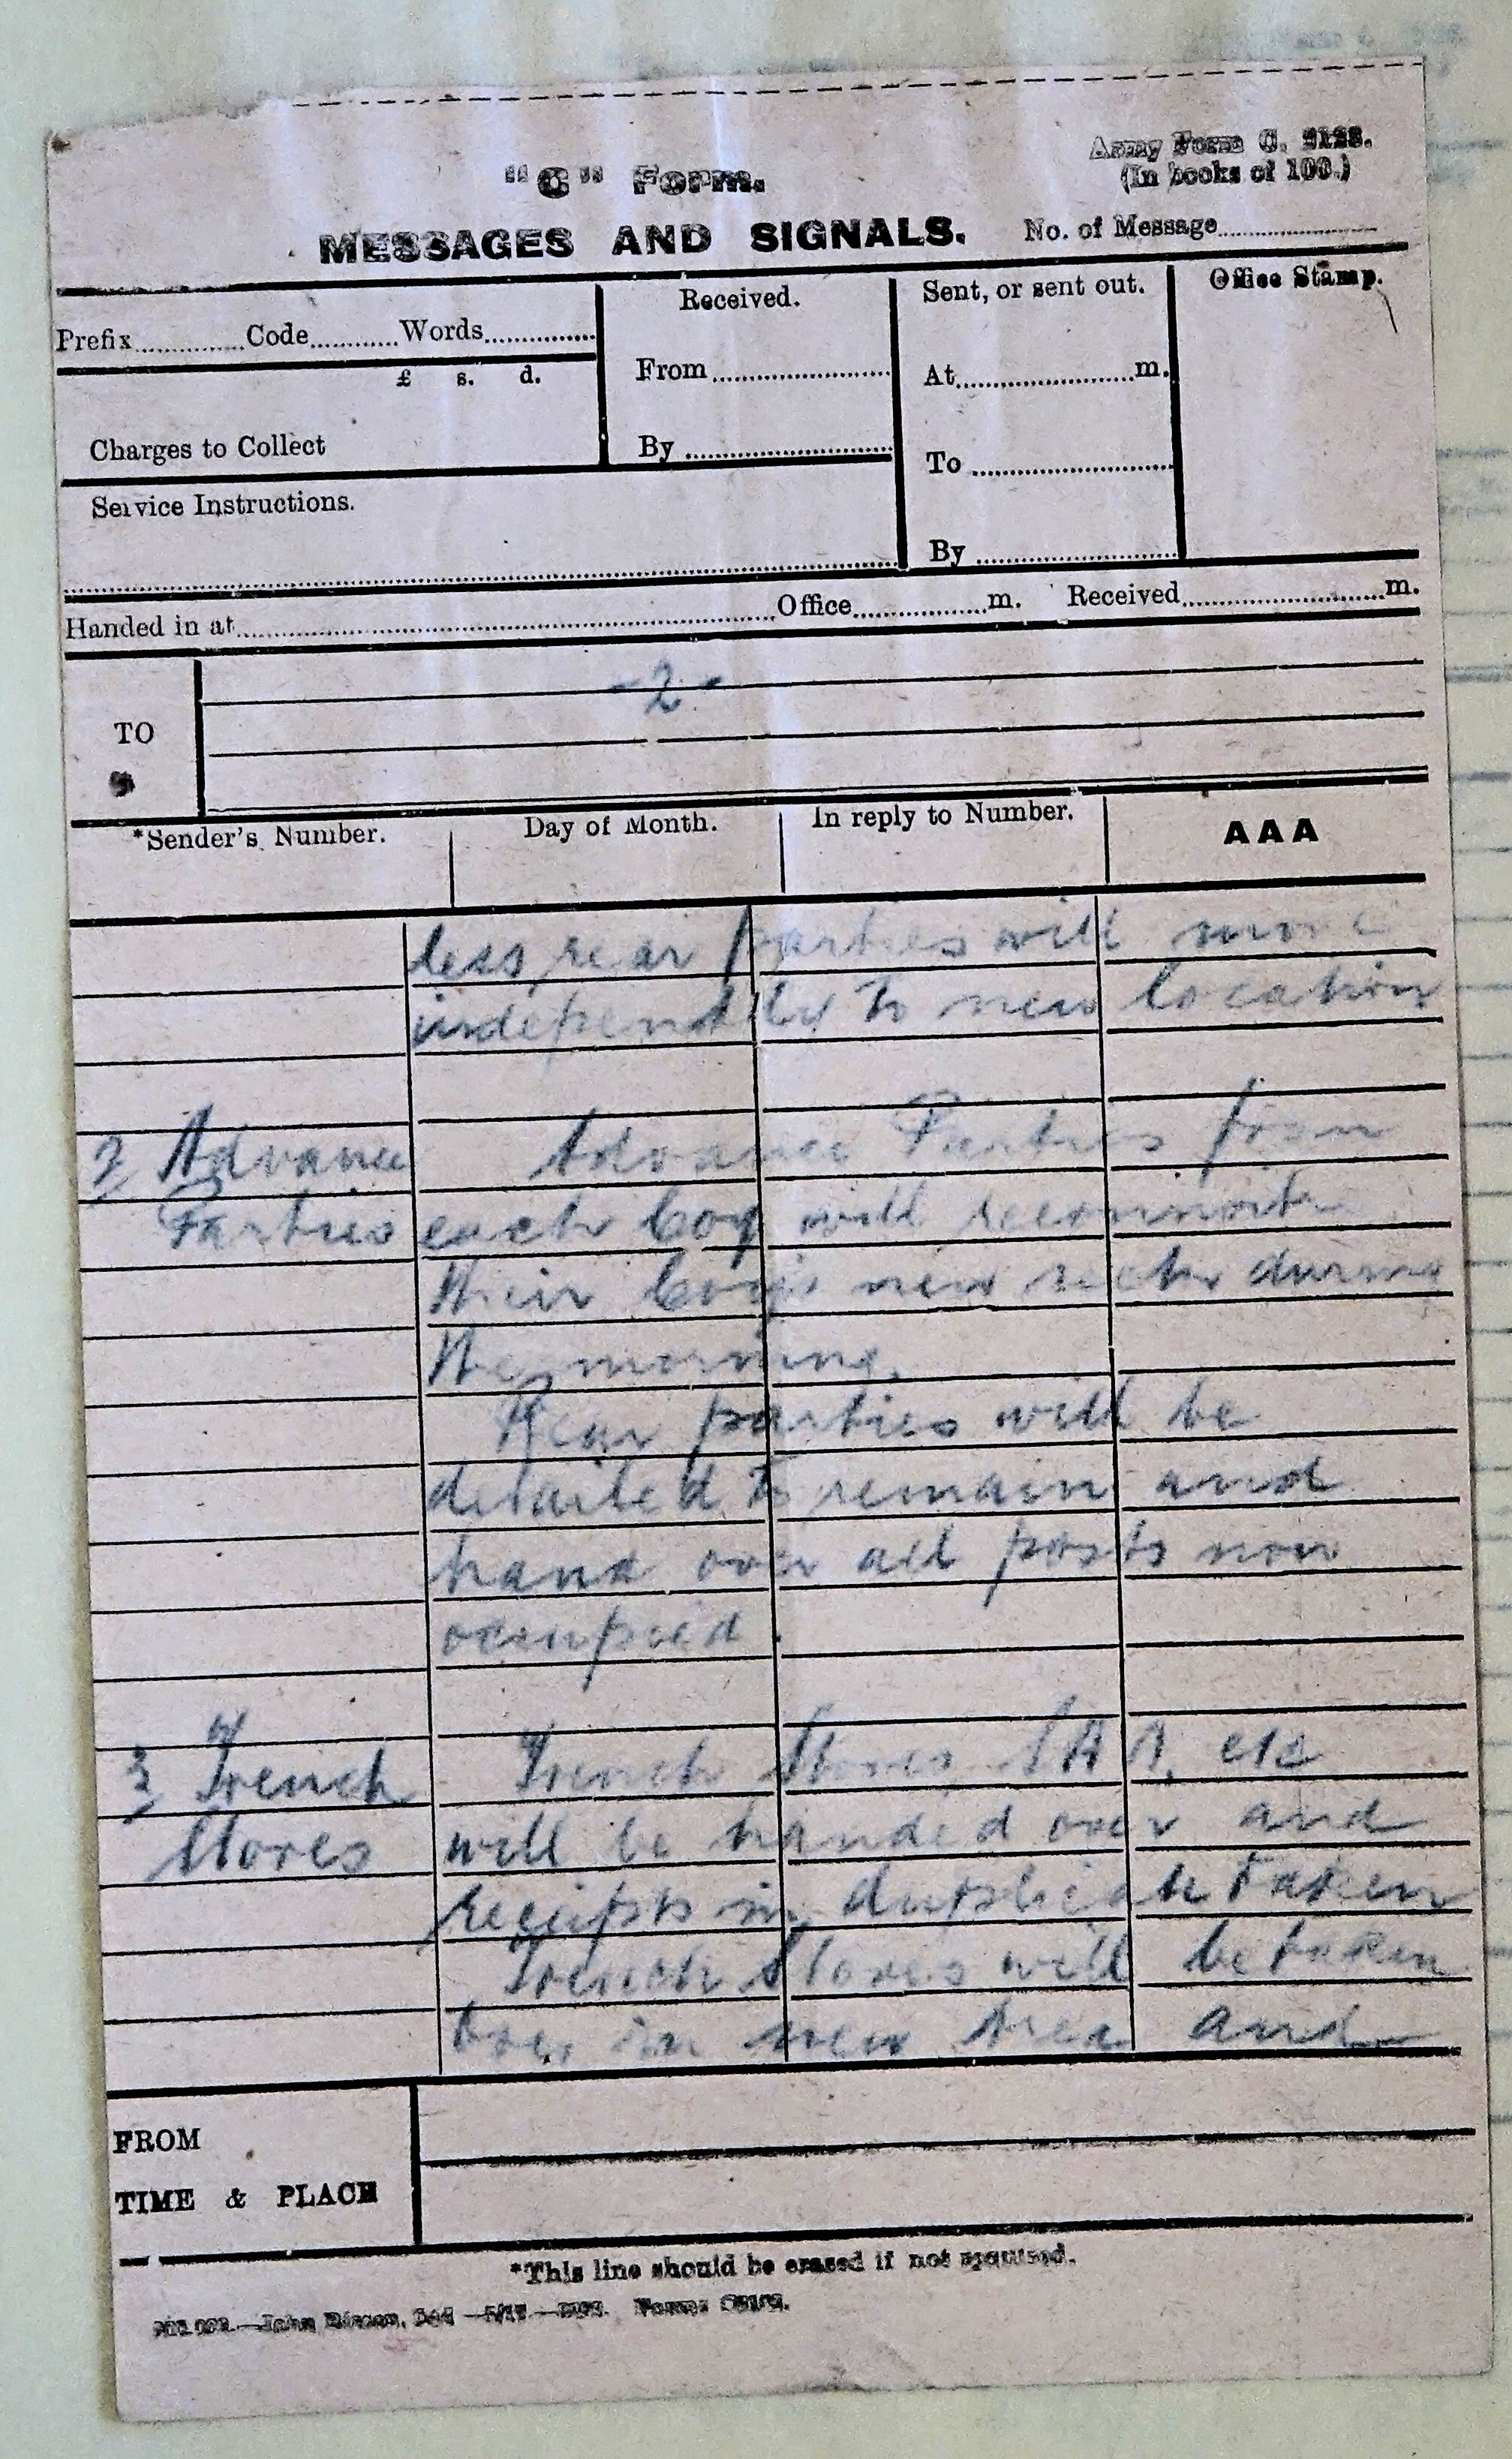 "C" Form.
Army Form C. 2123.
(In books of 100.)
MESSAGES AND SIGNALS.
No. of Message
Prefix Code Words
Received.
Sent, or sent out.
Office Stamp.
£ s. d.
From
At m.
Charges to Collect
By
To
Service Instructions.
By
Handed in at Office m. Received m.
TO
- 2 -
*Sender's Number. Day of Month. In reply to Number. AAA
less rear parties will move
independtly to new location
2 Advance Advance Parties from
Parties each Coy will reconnoitre
their Coys new sector during
the morning.
Rear parties will be
detailed to remain and
hand over all posts now
occupied.
3 Trench Trench Stores, SAA, etc
Stores will be handed over and
receipts in duplicate taken
Trench Stores will be taken
over in new Area and
FROM
TIME & PLACE
*This line should be erased if not required.